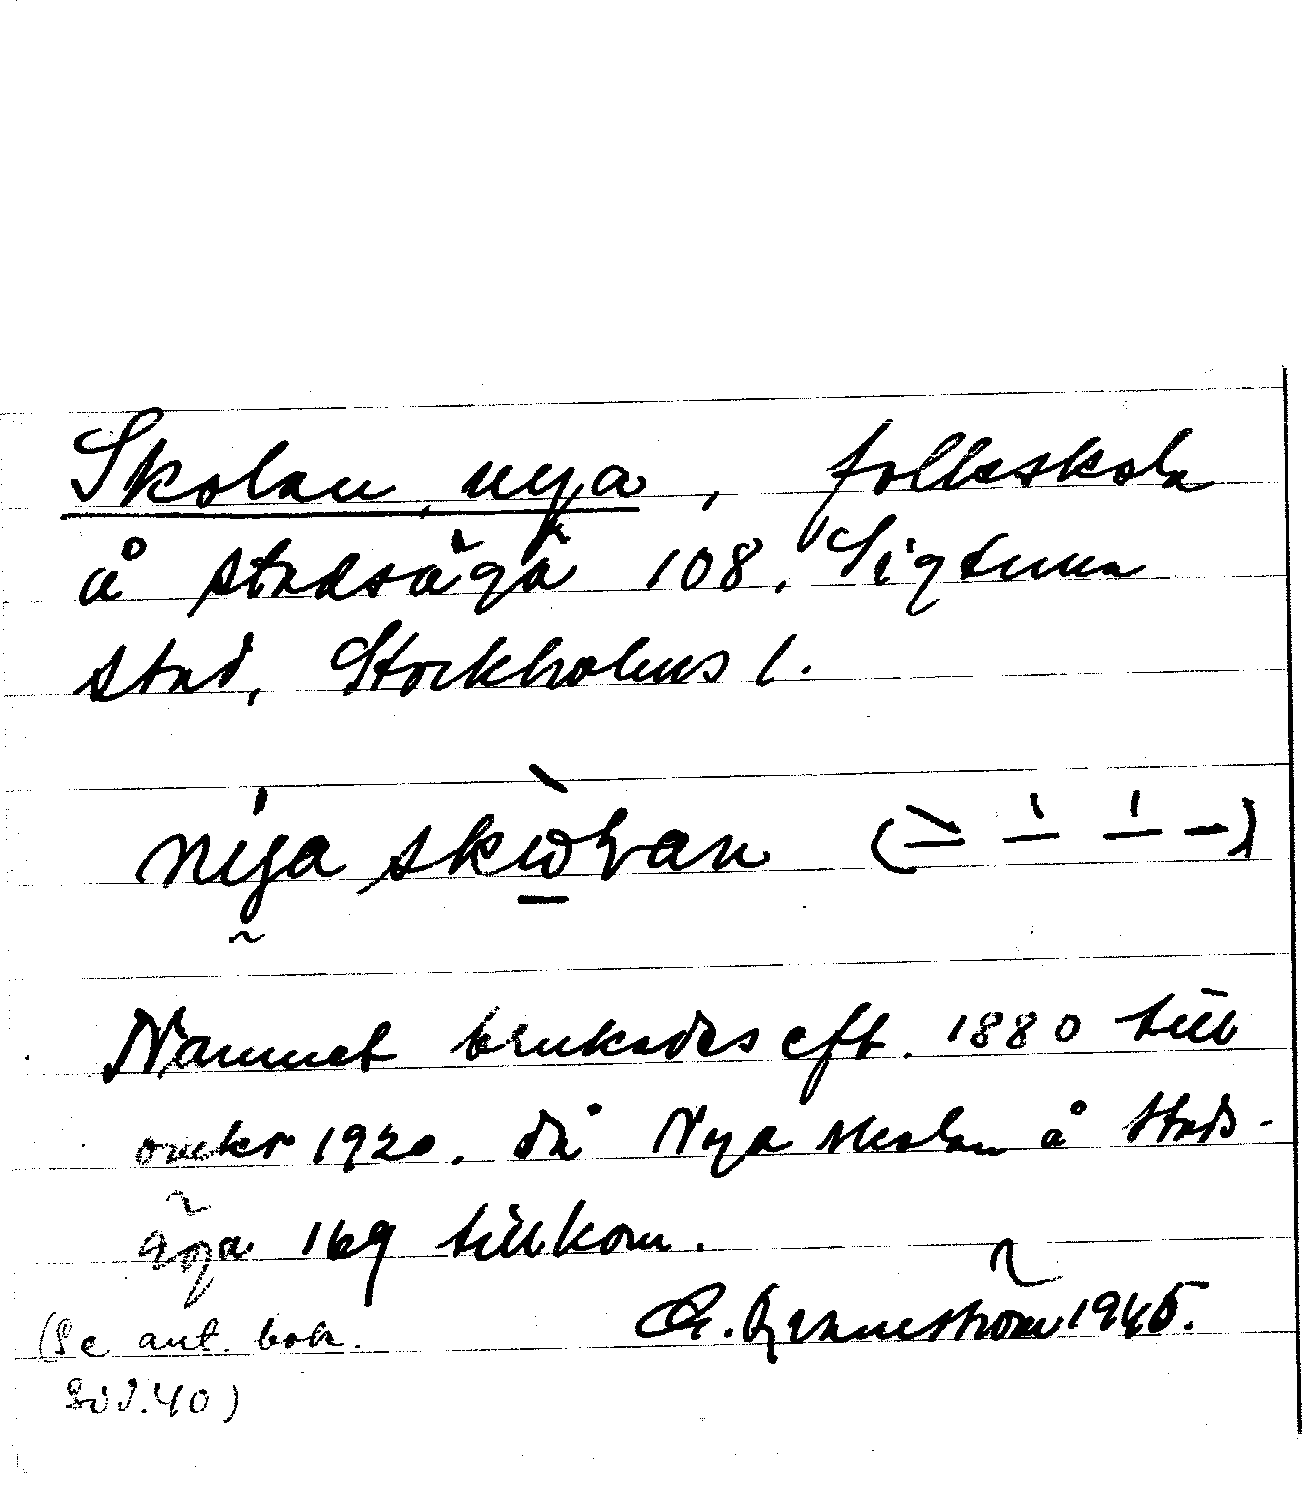 Skolan, nya, folkskola
å stadsäga 108, Sigtuna
stad, Stockholms l.
nya skolan
Namnet brukades eft. 1880 till
omkr 1920, då Nya skolan å Stads-
äga 169 tillkom.
1945.
(Se ant. bok.
sid. 40)